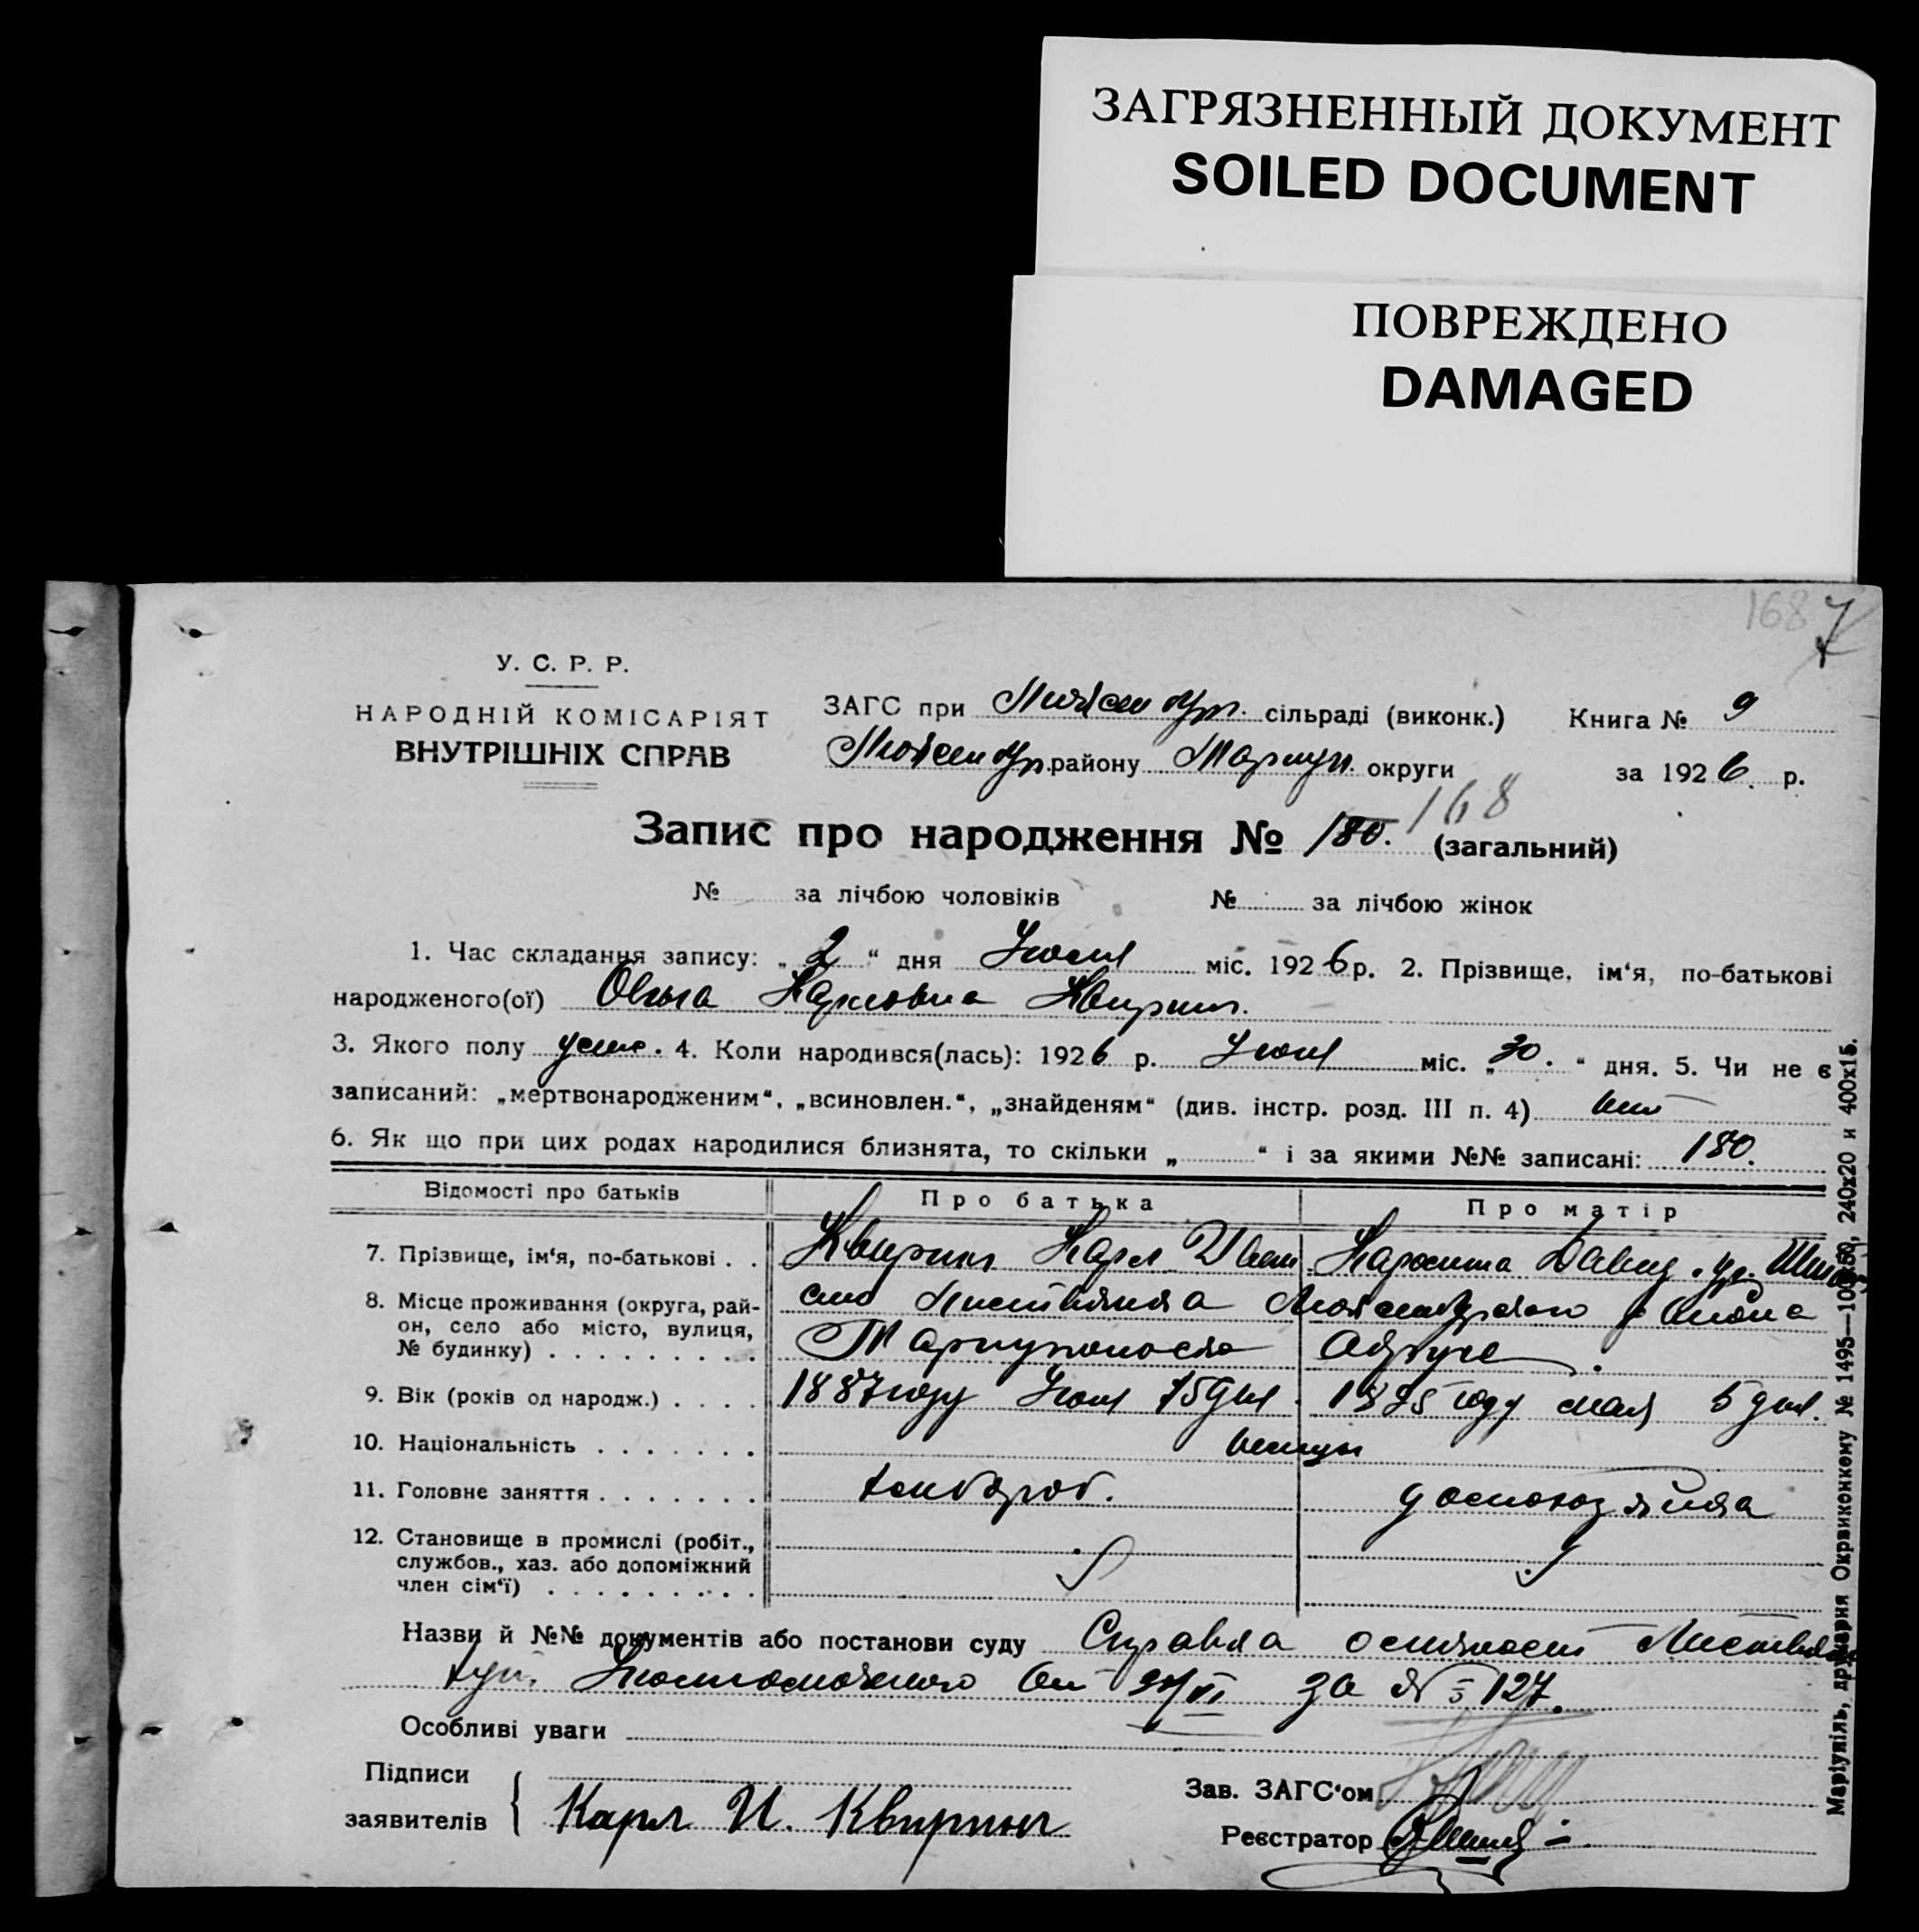 ЗАГРЯЗНЕННЫЙ ДОКУМЕНТ
SOILED DOCUMENT
ПОВРЕЖДЕНО
DAMAGED
168 7
У. С. Р. Р.
НАРОДНІЙ КОМІСАРІЯТ
ВНУТРІШНІХ СПРАВ
ЗАГС при сільраді (виконк.) Книга № 9
району Мариуп. округи за 1926 р.
Запис про народження № 180. 168 (загальний)
№ за лічбою чоловіків № за лічбою жінок
1. Час складання запису: „2“ дня Июля міс. 1926 р. 2. Прізвище, ім‘я, по-батькові
народженого(ої) Ольга Карловна Квиринг.
3. Якого полу женс. 4. Коли народився(лась): 1926 р. Июня міс. „30.“ дня. 5. Чи не є
записаний: „мертвонародженим“, „всиновлен.“, „знайденям“ (див. інстр. розд. III п. 4) нет
6. Як що при цих родах народилися близнята, то скільки „ “ і за якими №№ записані: 180.
Відомості про батьків Про батька Про матір
7. Прізвище, ім‘я, по-батькові . . Квиринг Карл Иван Каролина Давид. ур.
8. Місце проживання (округа, рай-
он, село або місто, вулиця,
№ будинку) . . . . . . . . .
Мариупольского Округа.
9. Вік (років од народж.) . . . . 1887 году 15 дня. году мая 5 дня.
10. Національність . . . . . . . немцы
11. Головне заняття . . . . . . . хлебороб. домохозяйка
12. Становище в промислі (робіт.,
службов., хаз. або допоміжний
член сім‘ї) . . . . . . . . .
Назви й №№ документів або постанови суду Справка
за № 127.
Особливі уваги
Підписи
заявителів { Карл И. Квиринг
Зав. ЗАГС‘ом
Реєстратор
Маріупіль, друкарня Окрвиконкому № 1495—10х50, 240х20 и 400х15.